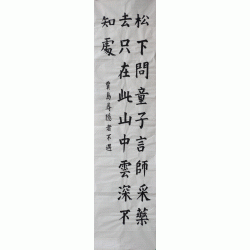 松下問童子言師采藥
去只在此山中雲深不
知處
賈島尋隱者不遇